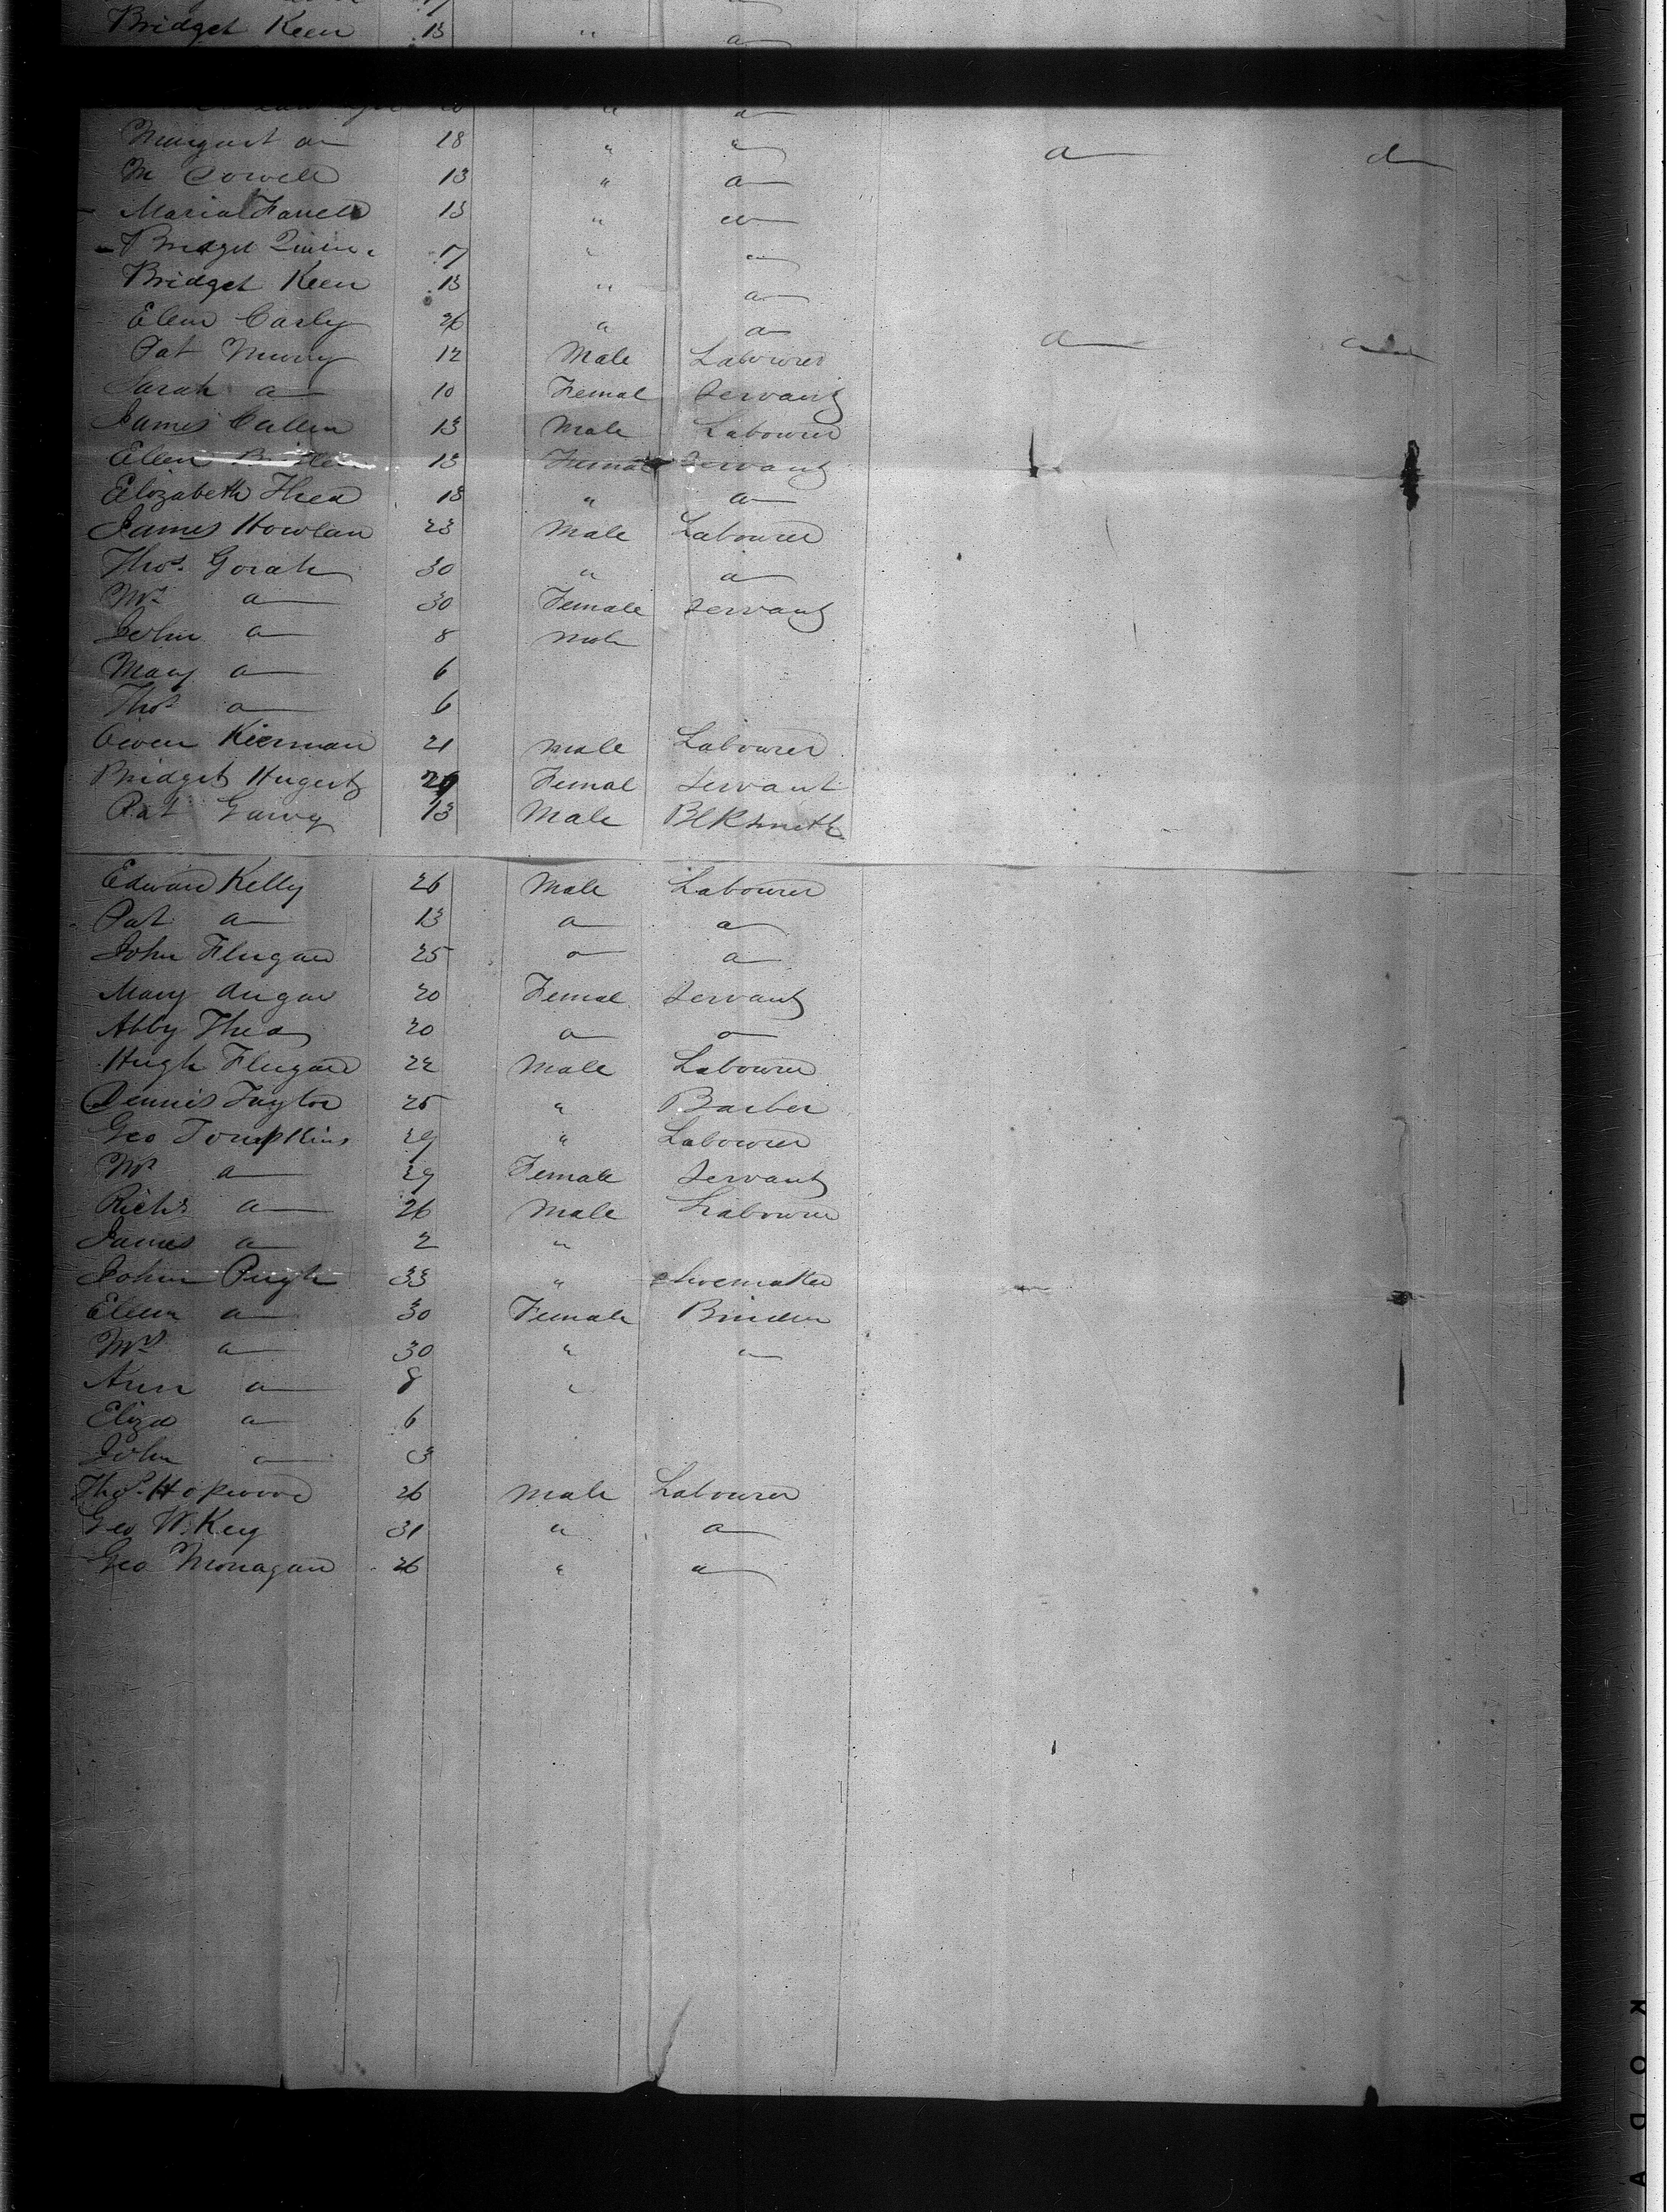 Bridget Keen 13 " a
Margaret a 18 " " a a
M 13 " a
Maria 13 " a
Bridget 17 " a
Bridget Keen 13 " a
Ellen Carly 26 " a a a
Pat Murry 12 Male Labourer
Sarah a 10 Femal Servant
James Callen 13 Male Labourer
Ellen 13 Femal Servant
Elizabeth Thea 18 " a
James Howlan 23 Male Labourer
Thos. Gorah 30 " a
Mrs a 30 Female Servant
John a 8 Male
Mary a 6
Thos a 6
Owen Kiernan 21 Male Labourer
Bridget 29 Femal Servant
Pat Garvy 13 Male Blksmith
Edward Kelly 26 Male Labourer
Pat a 13 a a
John Flugan 25 a a
Mary 20 Femal Servant
Abby Thea 20 a a
Hugh Flugan 22 Male Labourer
Dennis Taylor 25 " Barber
Geo Tompkins 29 " Labourer
Mrs a 29 Female Servant
Richd a 26 Male Labourer
James a 2 "
John Pugh 33 " Shoemaker
Ellen a 30 Female Binder
Mrs a 30 " "
Ann a 8 "
Eliza a 6
John a 3
Thos. Hopwood 26 Male Labourer
Geo W. Key 31 " a
Geo Monagan 26 " a
KODA